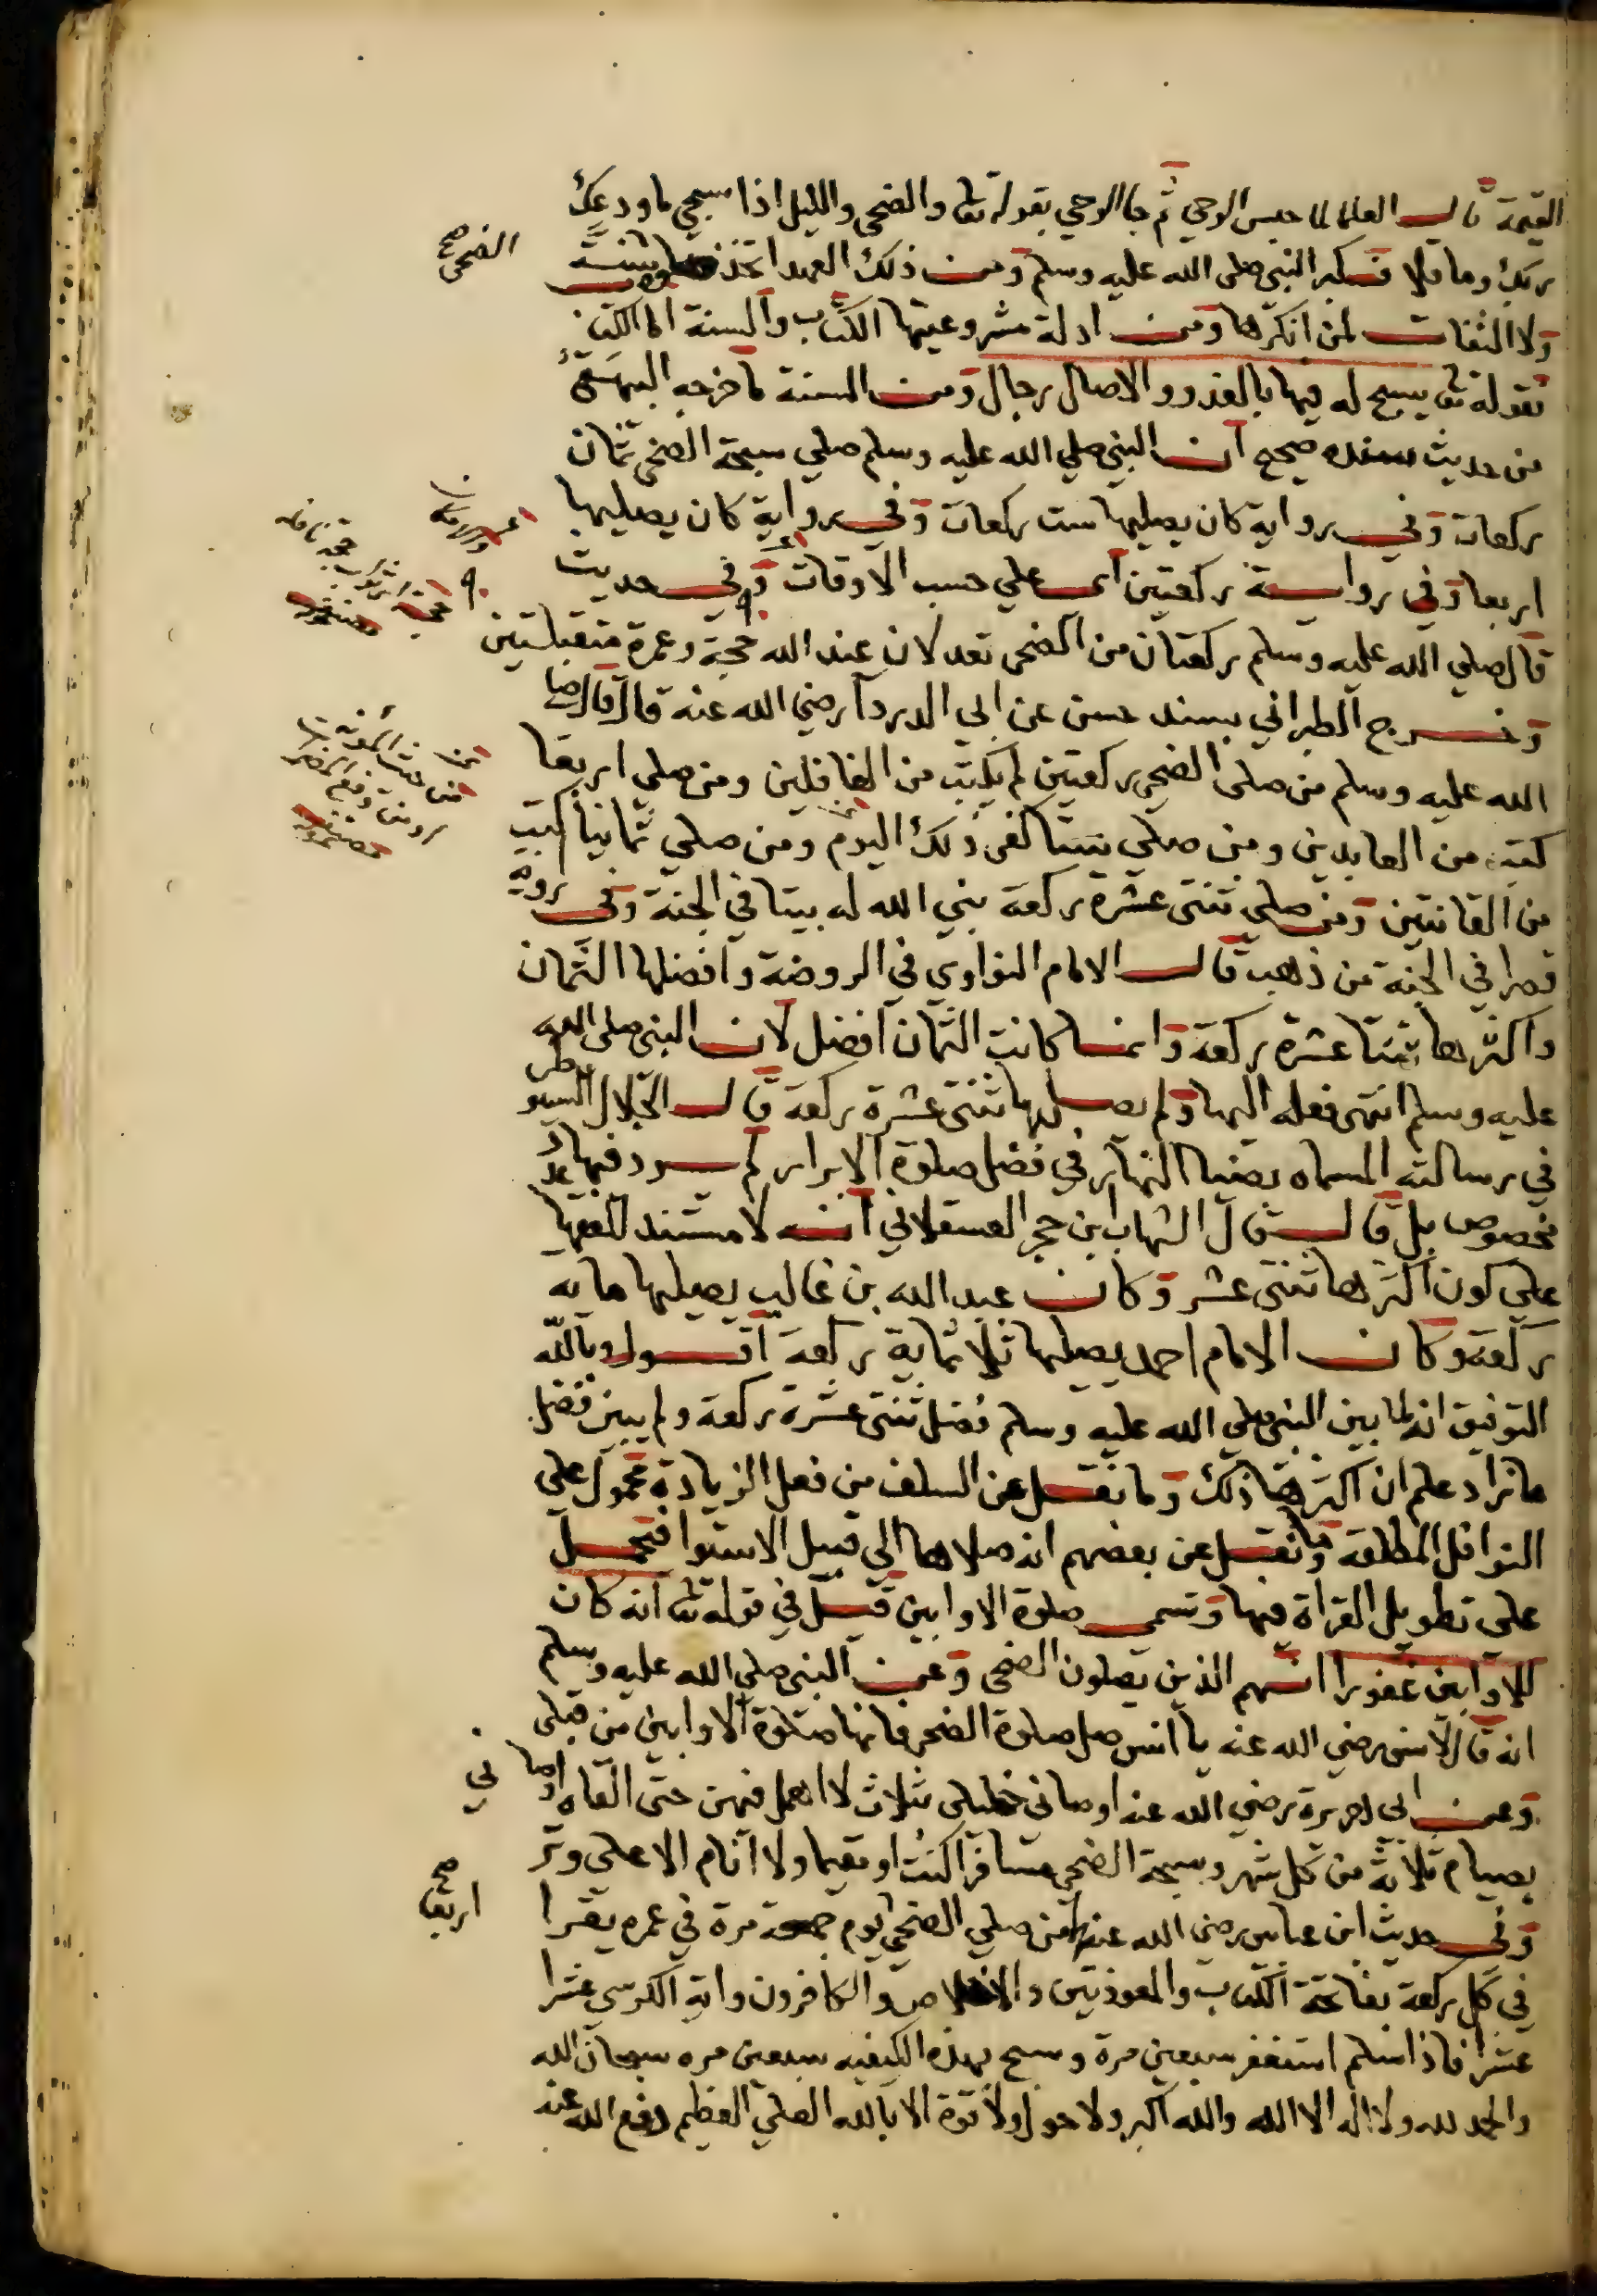 القيمة قال العلما لما حبس الوحي ثم جا الوحي بقوله تعا والضحى والليل اذا سجى ما ودعك
ربك وما قلا فكبر النبي صلى الله عليه وسلم ومن ذلك العهد اتخذ سنة
ولا التفات لمن انكرها ومن ادلة مشروعيتها الكتاب والسنة اما الكتاب
فقوله تعا يسبح له فيها بالغدو والاصال رجال ومن السنة ما خرجه البيهقي
من حديث سنده صحيح ان النبي صلي الله عليه وسلم صلي سبحة الضحى ثمان
ركعات وفي رواية كان يصليها ست ركعات وفي رواية كان يصليها
اربعا وفي رواية ركعتين اي علي حسب الاوقات وفي حديث
قال صلي الله عليه وسلم ركعتان من الضحى تعدلان عند الله حجة وعمرة متقبلتين
وخرج الطبراني بسند حسن عن ابي الدردا رضي الله عنه قال قال صلى
الله عليه وسلم من صلى الضحي ركعتين لم يكتب من الغافلين ومن صلي اربعا
كتب من العابدين ومن صلي ستا كفى ذلك اليوم ومن صلي ثمانيا كتب
من القانتين ومن صلي ثنتى عشرة ركعة بني الله له بيتا في الجنة وفي رواية
قصرا في الجنة من ذهب قال الامام النواوي في الروضة وافضلها الثمان
واكثرها ثنتا عشرة ركعة وانما كانت الثمان افضل لان النبي صلى الله
عليه وسلم انتهى فعله اليها ولم يصليها ثنتى عشرة ركعة قال الجلال السيوطي
في رسالته المسماه بضيا النهار في فضل صلوة الابرار لم يرد فيها عدد
مخصوص بل قال قال الشهاب ابن حجر العسقلاني انه لا مستند للفقها
علي كون اكثرها ثنتى عشر وكان عبد الله بن غالب يصليها مايه
ركعة وكان الامام احمد يصليها ثلاثماية ركعة اقول وبالله
التوفيق انه لما بين النبي صلي الله عليه وسلم فضل ثنتى عشرة ركعة ولم يبين فضل
ما زاد علم ان اكثرها ذلك وما نقل عن السلف من فعل الزيادة محمول علي
النوافل المطلقة وما نقل عن بعضهم انه صلاها الي قبيل الاستوا فتحمل
علي تطويل القراة فيها وتسمى صلوة الاوابين قيل في قوله تعا انه كان
للاوابين غفورا انهم الذين يصلون الضحى وعن النبي صلي الله عليه وسلم
انه قال لانس رضي الله عنه يا انس صل صلوة الضحى فانها صلوة الاوابين من قبلى
وعن ابي هريرة رضي الله عنه اوصاني خليلي بثلاث لا اهمل فيهن حتى القاه اوصاني
بصيام ثلاثة من كل شهر وسبحة الضحي مسافرا كنت او مقيما ولا انام الا علي وتر
وفي حديث ابن عباس رضي الله عنهما من صلي الضحي يوم جمعة مرة في عمره يقرا
في كل ركعة بفاتحة الكتاب والمعوذتين والاخلاص والكافرون واية الكرسي عشرا
عشرا فاذا سلم استغفر سبعين مرة وسبح بهذه الكيفيه سبعين مره سبحان الله
والحمد لله ولا اله الا الله والله اكبر ولا حول ولا قوة الا بالله العلي العظيم دفع الله عنه
الضحى صح
ني
اربعا صح